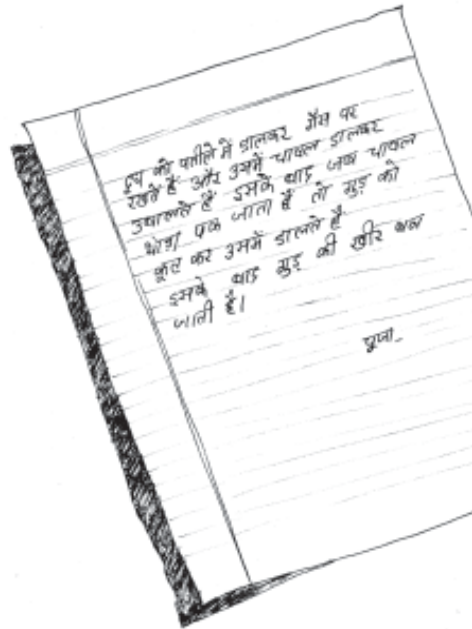 दूध को पतीले में डालकर गैस पर
रखते हैं और उसमें चावल डालकर
उबालते हैं इसके बाद जब चावल
थोड़ा पक जाता है तो गुड़ को
कूट कर उसमें डालते हैं
इसके बाद गुड़ की खीर बन
जाती है।
पूजा